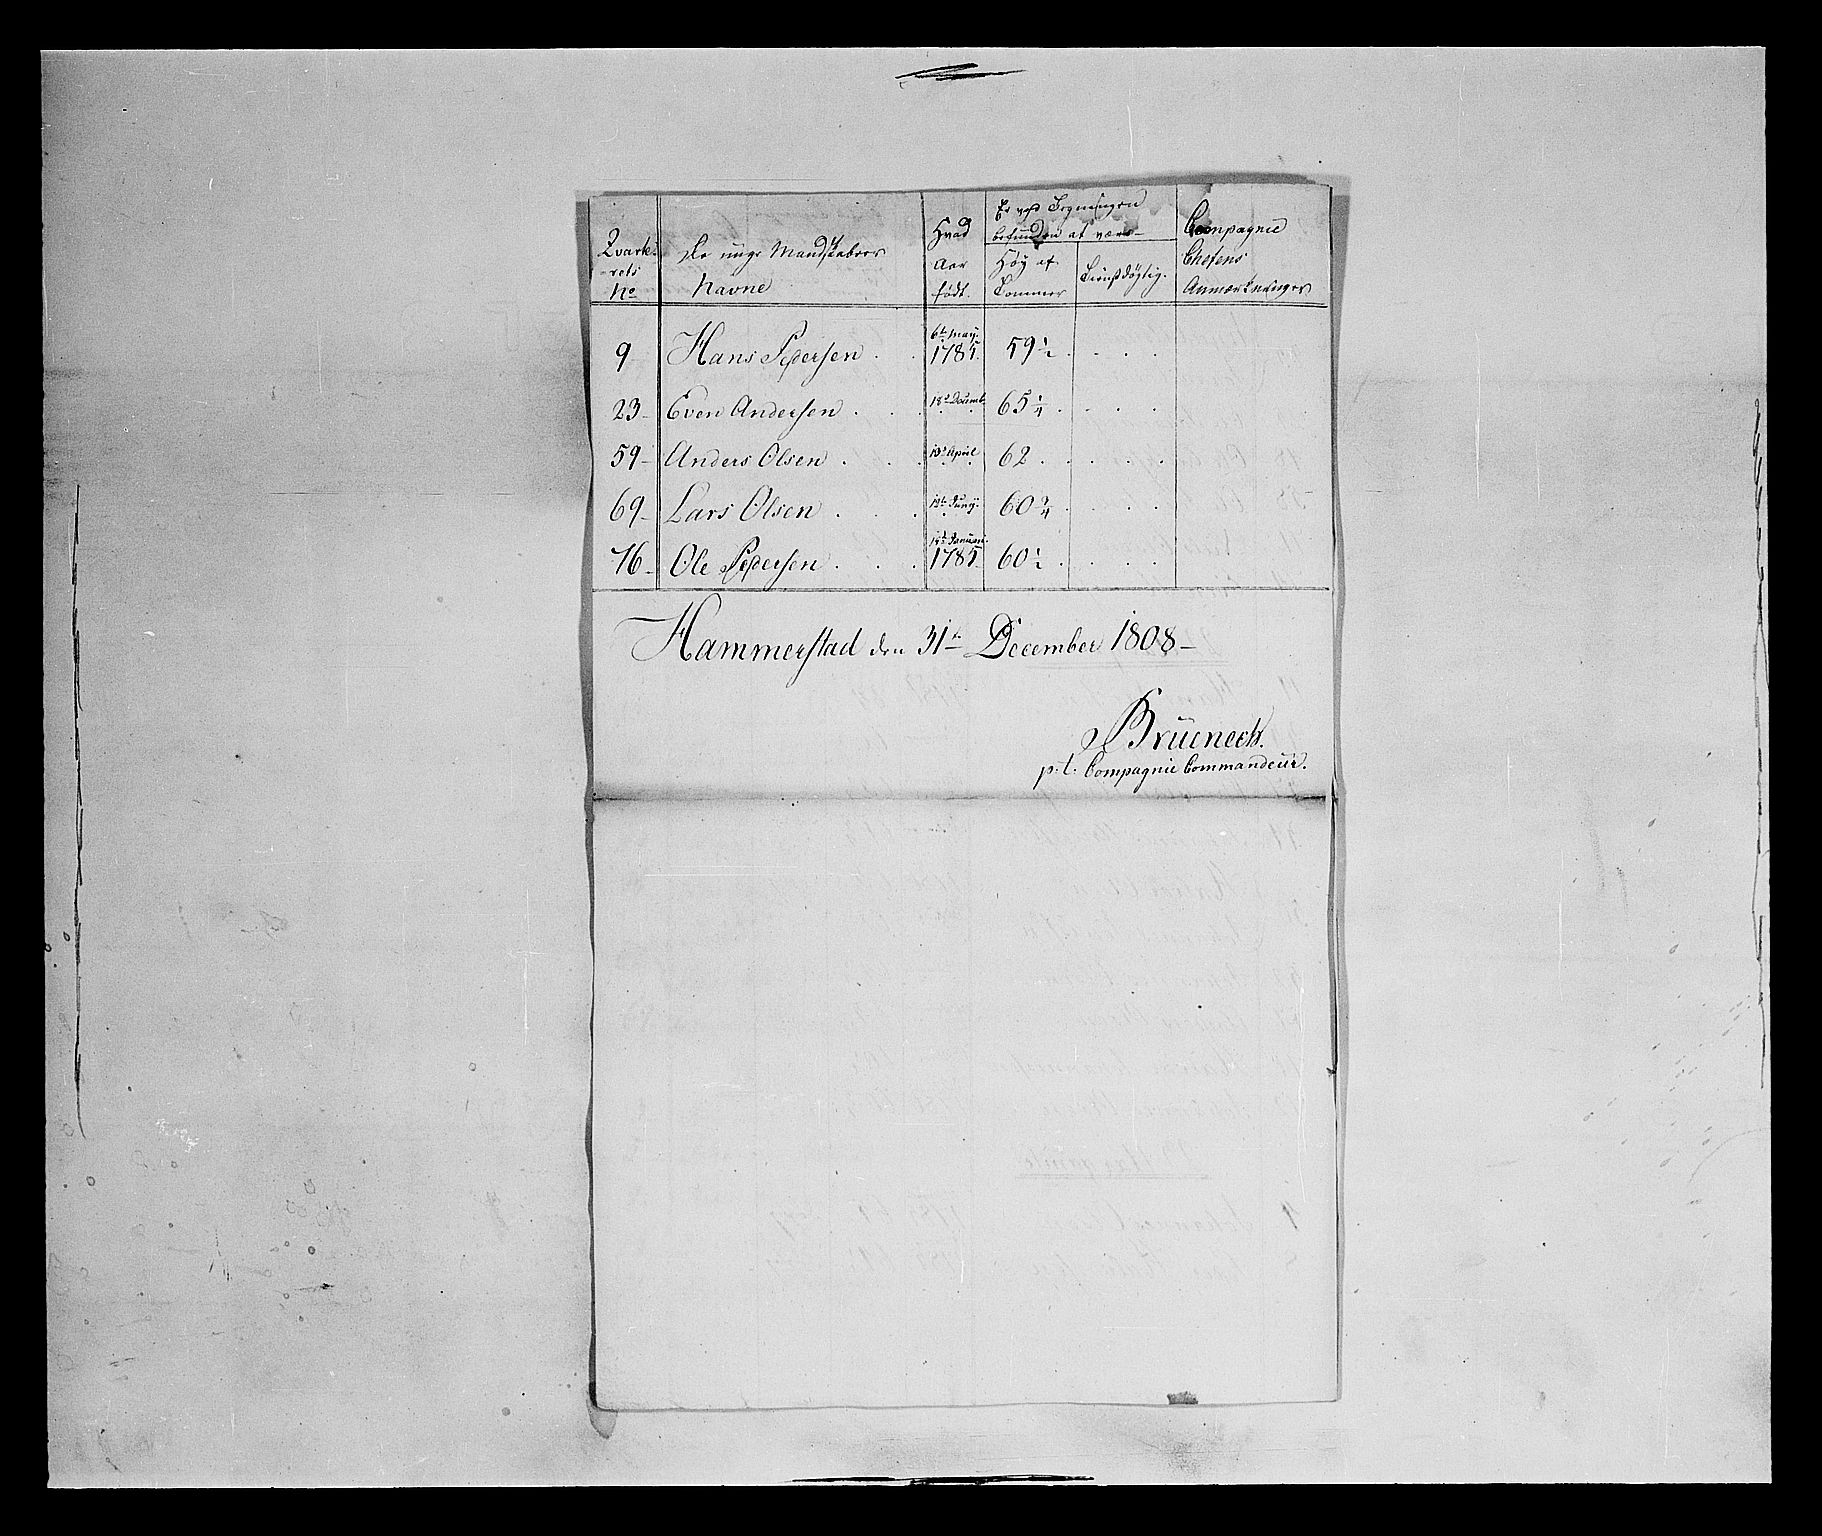 Qvarte-
-rets
No
De unge Mandskabers
Navne
Hvad
Aar
født.
Er ved Tegningen
befunden at være
Høy af
Tommer
Tienstdøgtig.
Compagnie
Chefens
Anmærkninger
9 Hans Pedersen . . 6te May 1785. 59 1/2 . . . .
23 - Even Andersen . . . 18de Decemb. 65 1/4 . . . .
59 - Anders Olsen . . . 13de April 62 . . . .
69 - Lars Olsen . . . 12te Juny. 60 3/4 . . . .
76 - Ole Pedersen . . . 14de Januari. 1785 60 1/2 . . . .
Hammerstad den 31te December 1808 -
Brüeneck.
p. t. Compagnie Commandeur.